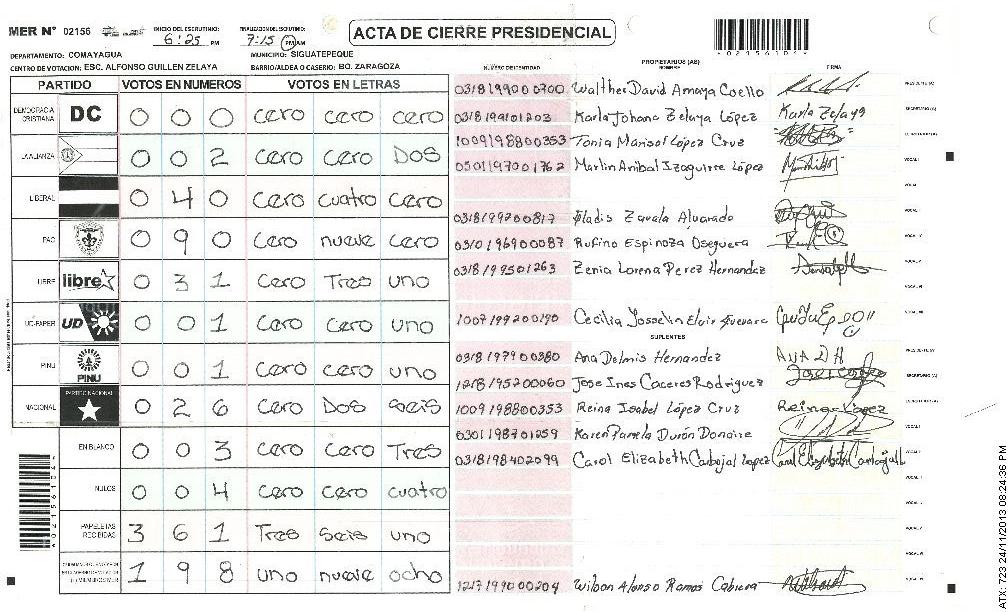 MER N° 02156
INICIO DEL ESCRUTINIO: 6:25 PM
FINALIZACION DEL ESCRUTINIO: 7:15 PM AM
ACTA DE CIERRE PRESIDENCIAL
*02156104*
DEPARTAMENTO: COMAYAGUA
MUNICIPIO: SIGUATEPEQUE
CENTRO DE VOTACION: ESC. ALFONSO GUILLEN ZELAYA
BARRIO/ALDEA O CASERIO: BO. ZARAGOZA
PARTIDO VOTOS EN NUMEROS VOTOS EN LETRAS
DEMOCRACIA CRISTIANA DC 0 0 0 cero cero cero
LA ALIANZA 0 0 2 cero cero Dos
LIBERAL 0 4 0 cero cuatro cero
PAC 0 9 0 cero nueve cero
LIBRE libre 0 3 1 cero Tres uno
UD-FAPER UD 0 0 1 cero cero uno
PINU PINU 0 0 1 cero cero uno
NACIONAL PARTIDO NACIONAL 0 2 6 cero Dos seis
EN BLANCO 0 0 3 cero cero Tres
NULOS 0 0 4 cero cero cuatro
PAPELETAS RECIBIDAS 3 6 1 Tres seis uno
1 9 8 uno nueve ocho
NÚMERO DE IDENTIDAD
PROPIETARIOS (AS)
NOMBRE
FIRMA
0318199000700 Walther David Amaya Coello
0318199101203 Karla Johana Zelaya López Karla Zelaya
1009198800353 Tonia Marisol López Cruz
0501197001762 Marlin Anibal Izaguirre López
0318199200817 Gladis Zavala Alvarado
0310196900087 Rufino Espinoza Oseguera
0318199501263 Zenia Lorena Perez Hernandez
1007199200190 Cecilia Josselin Elvir Guevara
SUPLENTES
0318197900380 Ana Delmis Hernandez
1218195200060 Jose Ines Caceres Rodriguez
1009198800353 Reina Isabel López Cruz Reina López
0301198701259 Karen Pamela Durón Donaire
0318198402099 Carol Elizabeth Carbajal Lopez Carol Elizabeth Carbajal L
1217199000204 Wilson Alonso Ramos Cabrera
*02156104*
ATX-723 24/11/2013 08:24:36 PM